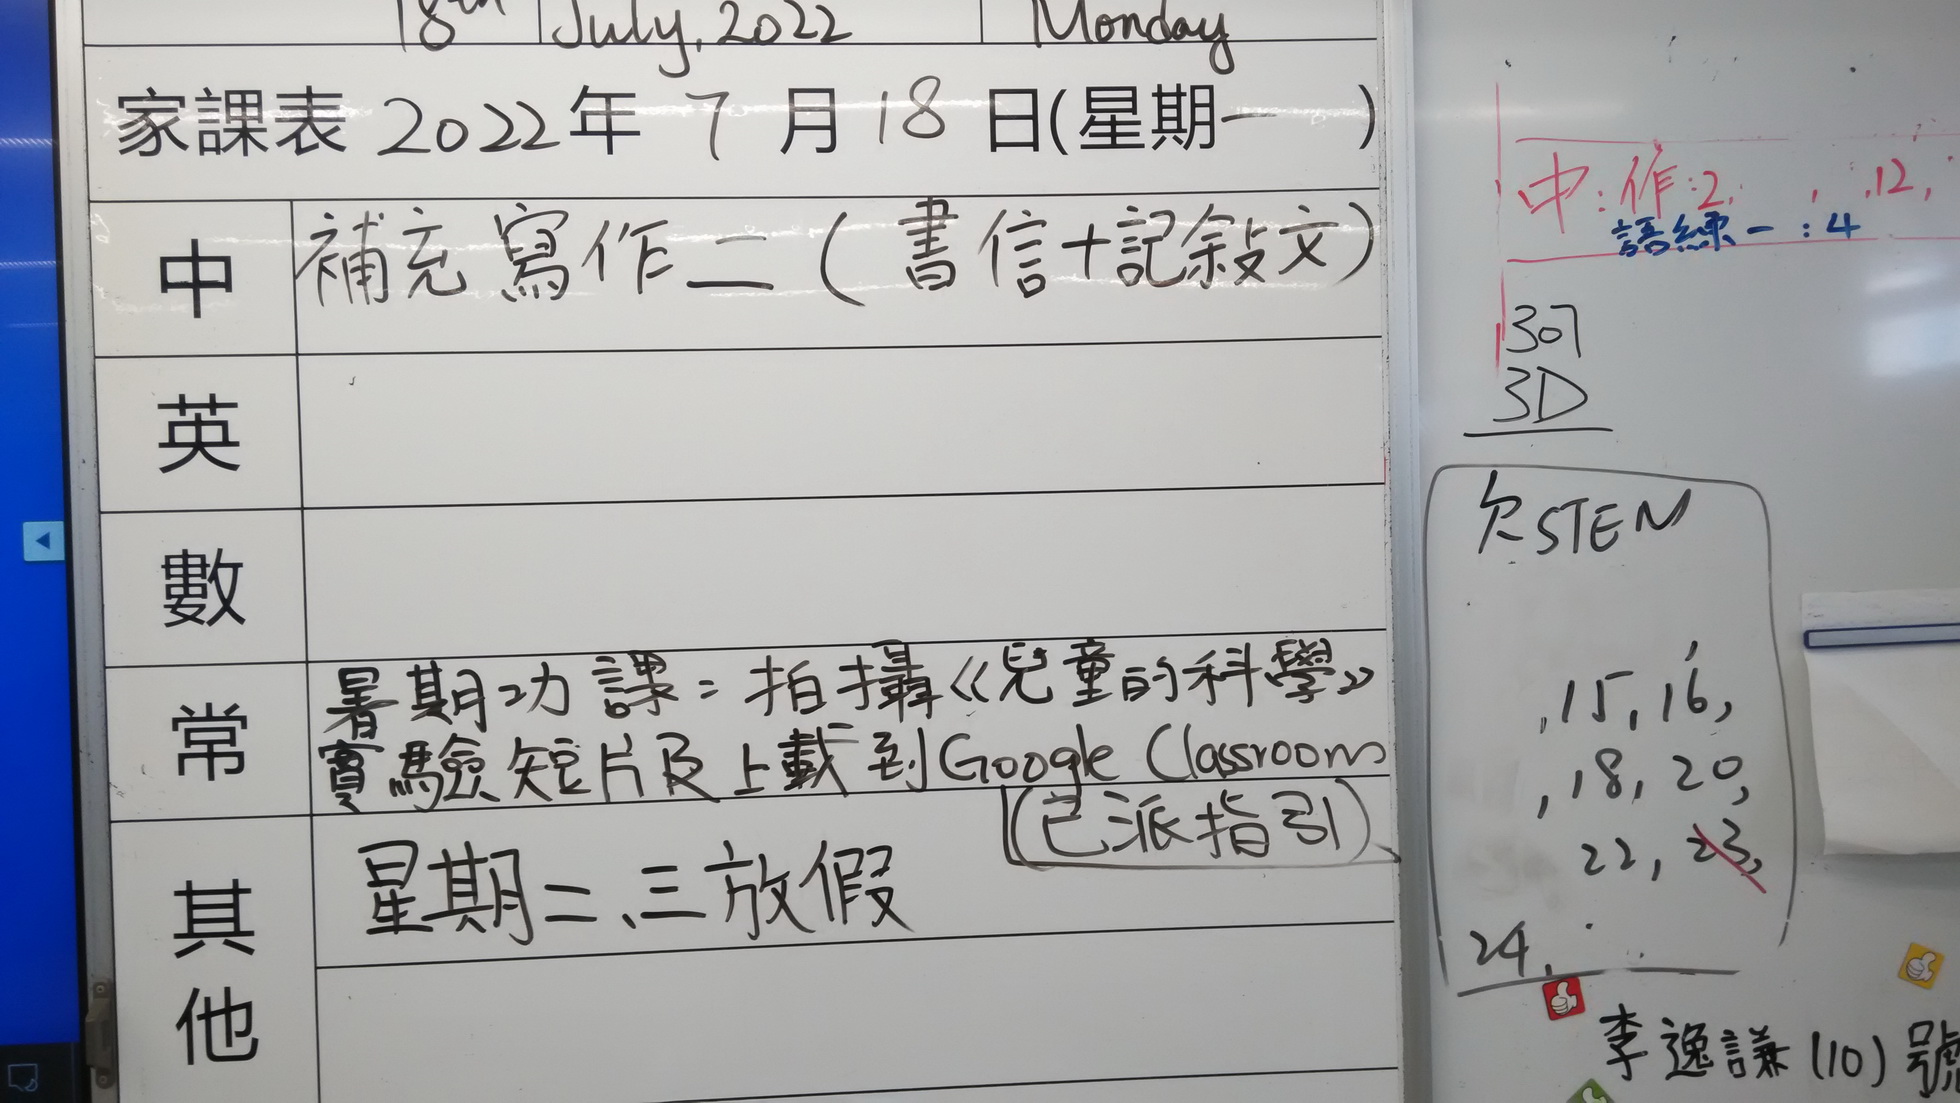 18th July, 2022 Monday
家課表 2022年 7 月 18 日(星期一 )
中 補充寫作二(書信+記敍文)
英
數
常 暑期功課:拍攝《兒童的科學》
實驗短片及上載到Google Classroom
(已派指引)
其他 星期二、三放假
中:作:2, , ,12,
語練一:4
307
3D
欠STEM
,15,16,
,18,20,
22,23,
24,
李逸謙(10)號